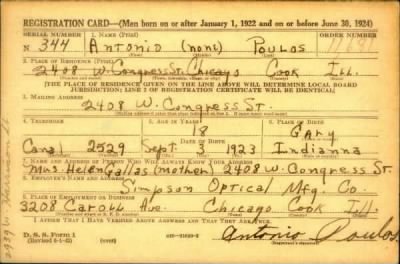 REGISTRATION CARD—(Men born on or after January 1, 1922 and on or before June 30, 1924)
SERIAL NUMBER 1. NAME (Print) ORDER NUMBER
N 344 Antonio (none) Poulos
2. PLACE OF RESIDENCE (Print)
2408 W. Congress St. Chicago Cook Ill.
(THE PLACE OF RESIDENCE GIVEN ON THE LINE ABOVE WILL DETERMINE LOCAL BOARD
JURISDICTION; LINE 2 OF REGISTRATION CERTIFICATE WILL BE IDENTICAL)
3. MAILING ADDRESS
2408 W. Congress St.
4. TELEPHONE 5. AGE IN YEARS 6. PLACE OF BIRTH
18 Gary
Canal 2529 Sept. 3 1923 Indianna
7. NAME AND ADDRESS OF PERSON WHO WILL ALWAYS KNOW YOUR ADDRESS
Mrs Helen Gallas (mother) 2408 W. Congress St.
8. EMPLOYER'S NAME AND ADDRESS
Simpson Optical Mfg. Co.
9. PLACE OF EMPLOYMENT OR BUSINESS
3208 Caroll Ave. Chicago Cook Ill.
I AFFIRM THAT I HAVE VERIFIED ABOVE ANSWERS AND THAT THEY ARE TRUE.
D. S. S. Form 1
Antonio Poulos